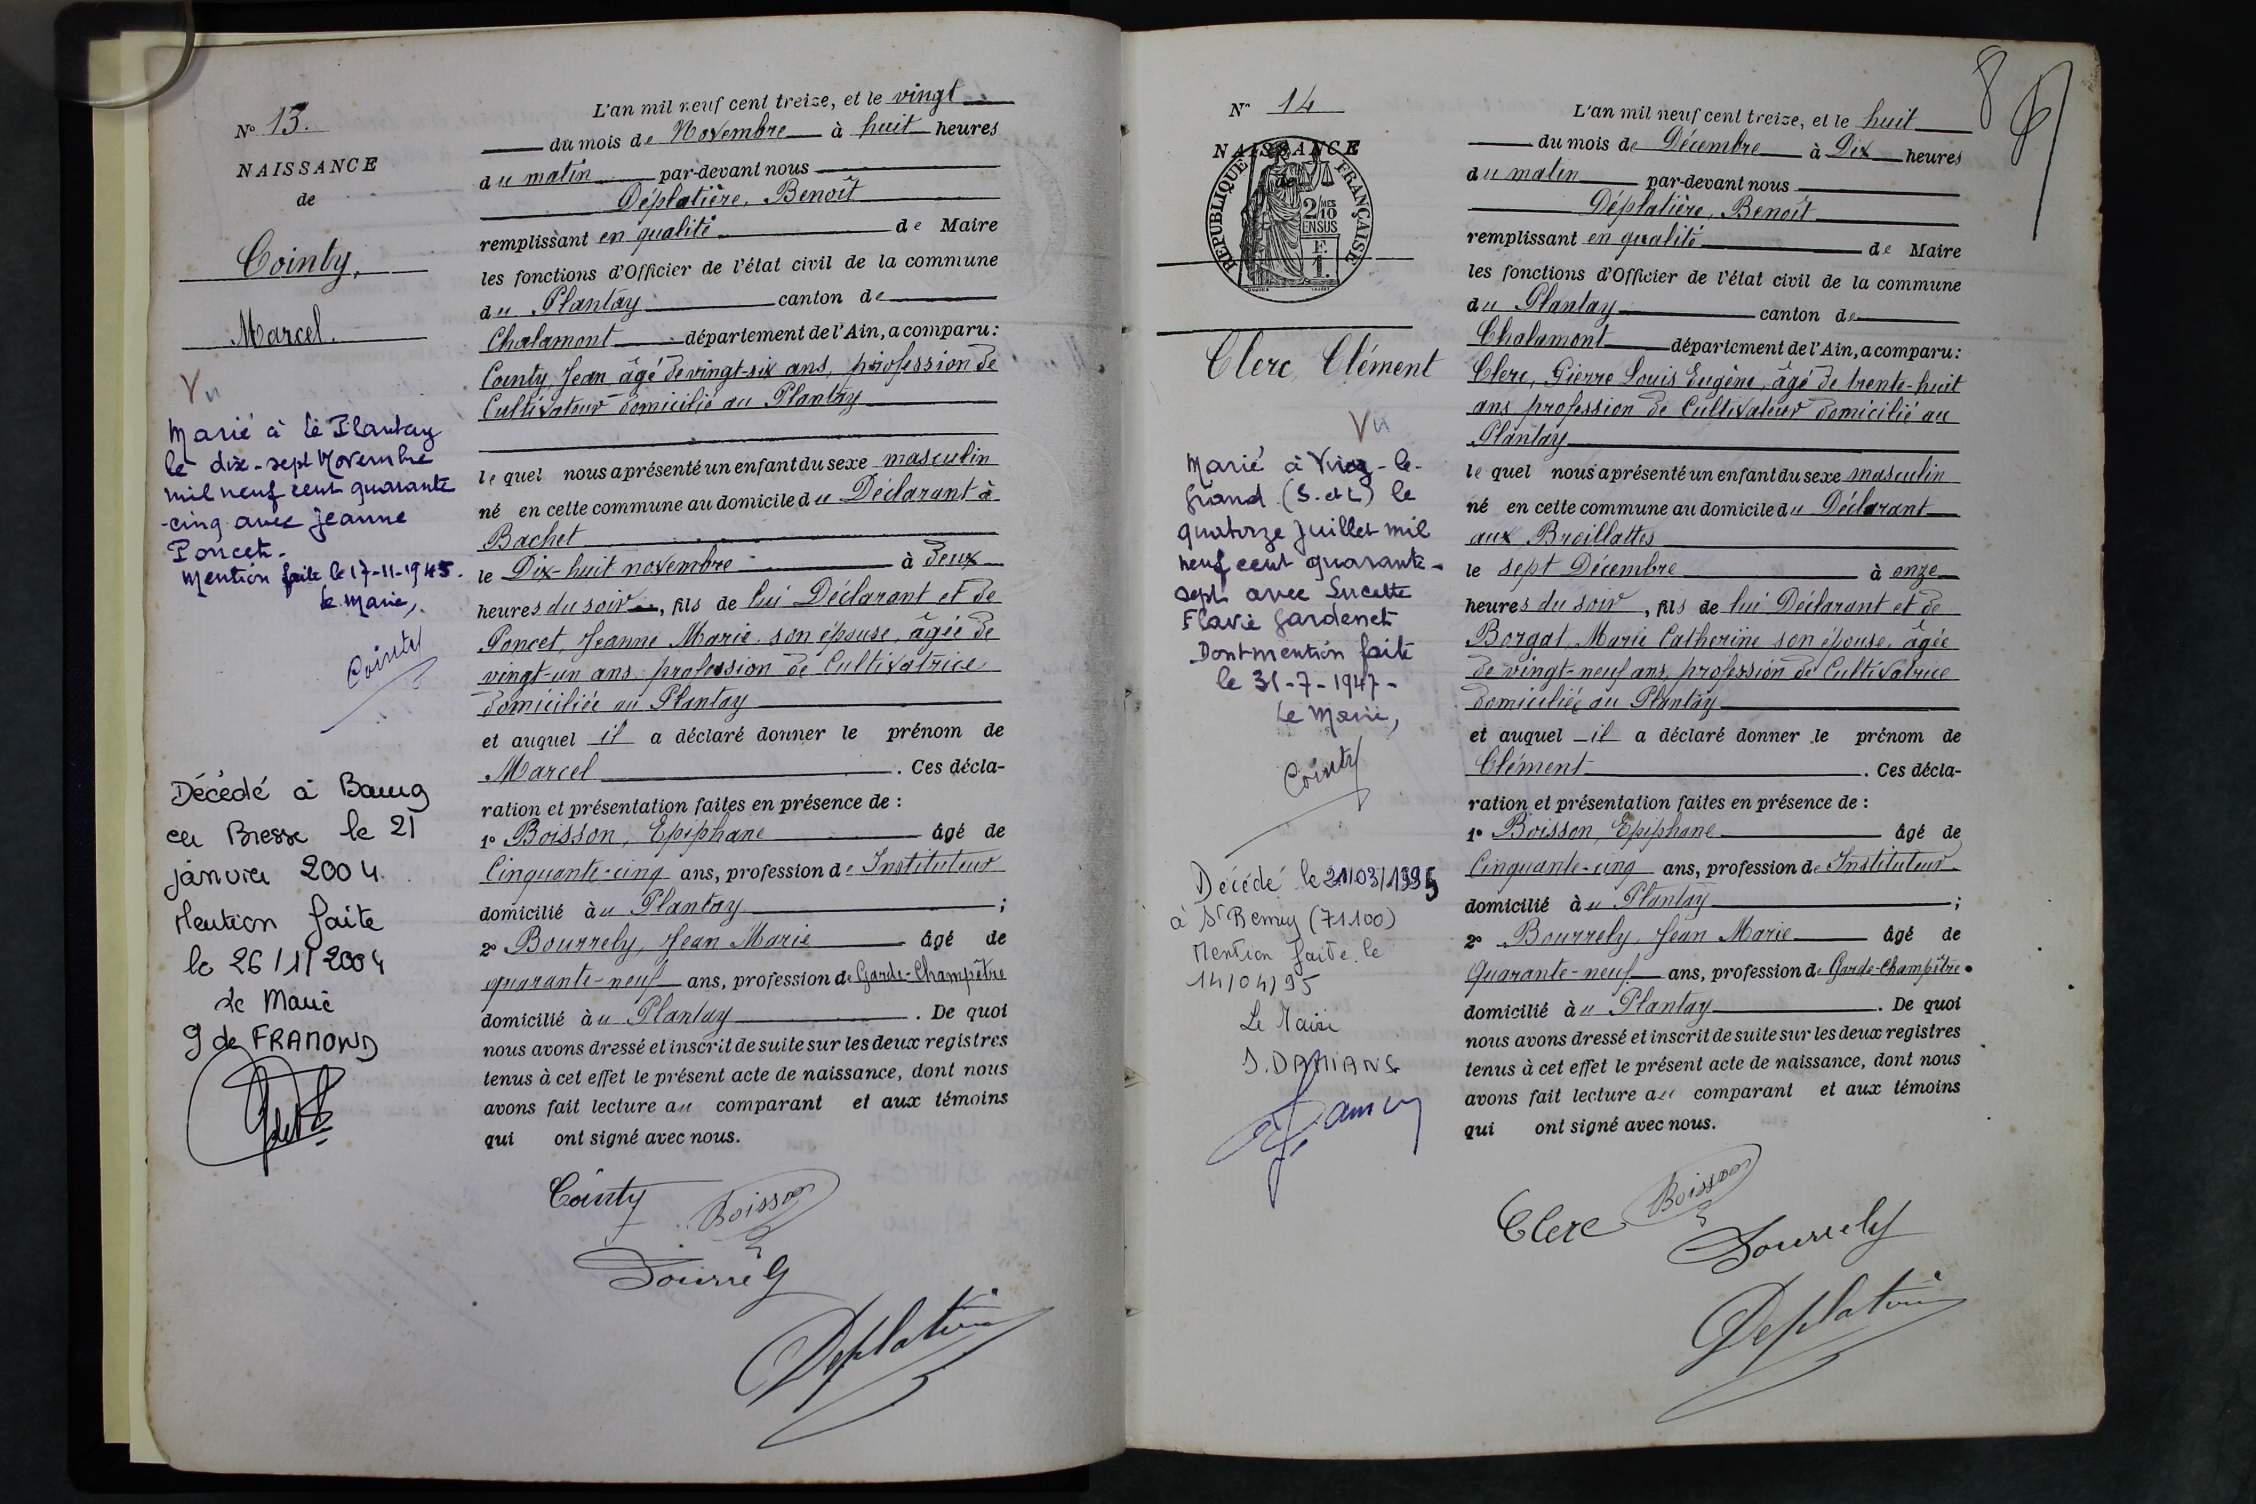 Nº 13.
NAISSANCE
de
Cointy,
Marcel.
Vu
Marié à Le Plantay
le dix-sept Novembre
mil neuf cent quarante
-cinq avec Jeanne
Poncet.
Mention faite le 17-11-1945.
Le Maire,
Cointy
Décédé à Bourg
en Bresse le 21
janvier 2004.
Mention faite
le 26/1/2004
Le Maire
G de FRAMOND
L'an mil neuf cent treize, et le vingt
du mois de Novembre à huit heures
du matin par-devant nous
Déplatière, Benoît
remplissant en qualité de Maire
les fonctions d'Officier de l'état civil de la commune
du Plantay canton de
Chalamont département de l'Ain, a comparu:
Cointy, Jean, âgé de vingt-six ans, profession de
Cultivateur domicilié au Plantay
lequel nous a présenté un enfant du sexe masculin
né en cette commune au domicile du Déclarant à
Bachet
le Dix-huit novembre à deux
heures du soir, fils de lui Déclarant et de
Poncet, Jeanne Marie son épouse, âgée de
vingt-un ans profession de Cultivatrice
domiciliée au Plantay
et auquel il a déclaré donner le prénom de
Marcel. Ces décla-
ration et présentation faites en présence de :
1º Boisson, Epiphane âgé de
Cinquante-cinq ans, profession de Instituteur
domicilié au Plantay;
2º Bourrely, Jean Marie âgé de
quarante-neuf ans, profession de Garde-Champêtre
domicilié au Plantay. De quoi
nous avons dressé et inscrit de suite sur les deux registres
tenus à cet effet le présent acte de naissance, dont nous
avons fait lecture au comparant et aux témoins
qui ont signé avec nous.
Cointy
Boisson
Bourrely
Deplatière
8
Nº 14
NAISSANCE
de
RÉPUBLIQUE FRANÇAISE
2/10MES
EN SUS
F.
1.
Clerc, Clément
Vu
Marié à Viriez-le-
Grand (S. et L) le
quatorze juillet mil
neuf cent quarante-
sept avec Lucette
Flavie Gardenet
Dont mention faite
le 31-7-1947-
Le Maire,
Cointy
Décédé le 21/03/1995
à St Remy (71100)
Mention faite le
14/04/95
Le Maire
J. DAMIANS
L'an mil neuf cent treize, et le huit
du mois de Décembre à Dix heures
du matin par-devant nous
Déplatière, Benoît
remplissant en qualité de Maire
les fonctions d'Officier de l'état civil de la commune
du Plantay canton de
Chalamont département de l'Ain, a comparu:
Clerc, Pierre Louis Eugène, âgé de trente-huit
ans profession de Cultivateur domicilié au
Plantay
lequel nous a présenté un enfant du sexe masculin
né en cette commune au domicile du Déclarant
aux Broillattes
le sept Décembre à onze
heures du soir, fils de lui Déclarant et de
Borgat, Marie Catherine son épouse, âgée
de vingt-neuf ans, profession de Cultivatrice
domiciliée au Plantay
et auquel il a déclaré donner le prénom de
Clément. Ces décla-
ration et présentation faites en présence de :
1º Boisson, Epiphane âgé de
Cinquante-cinq ans, profession de Instituteur
domicilié au Plantay;
2º Bourrely, Jean Marie âgé de
Quarante-neuf ans, profession de Garde-Champêtre
domicilié au Plantay. De quoi
nous avons dressé et inscrit de suite sur les deux registres
tenus à cet effet le présent acte de naissance, dont nous
avons fait lecture au comparant et aux témoins
qui ont signé avec nous.
Clerc
Boisson
Bourrely
Deplatière